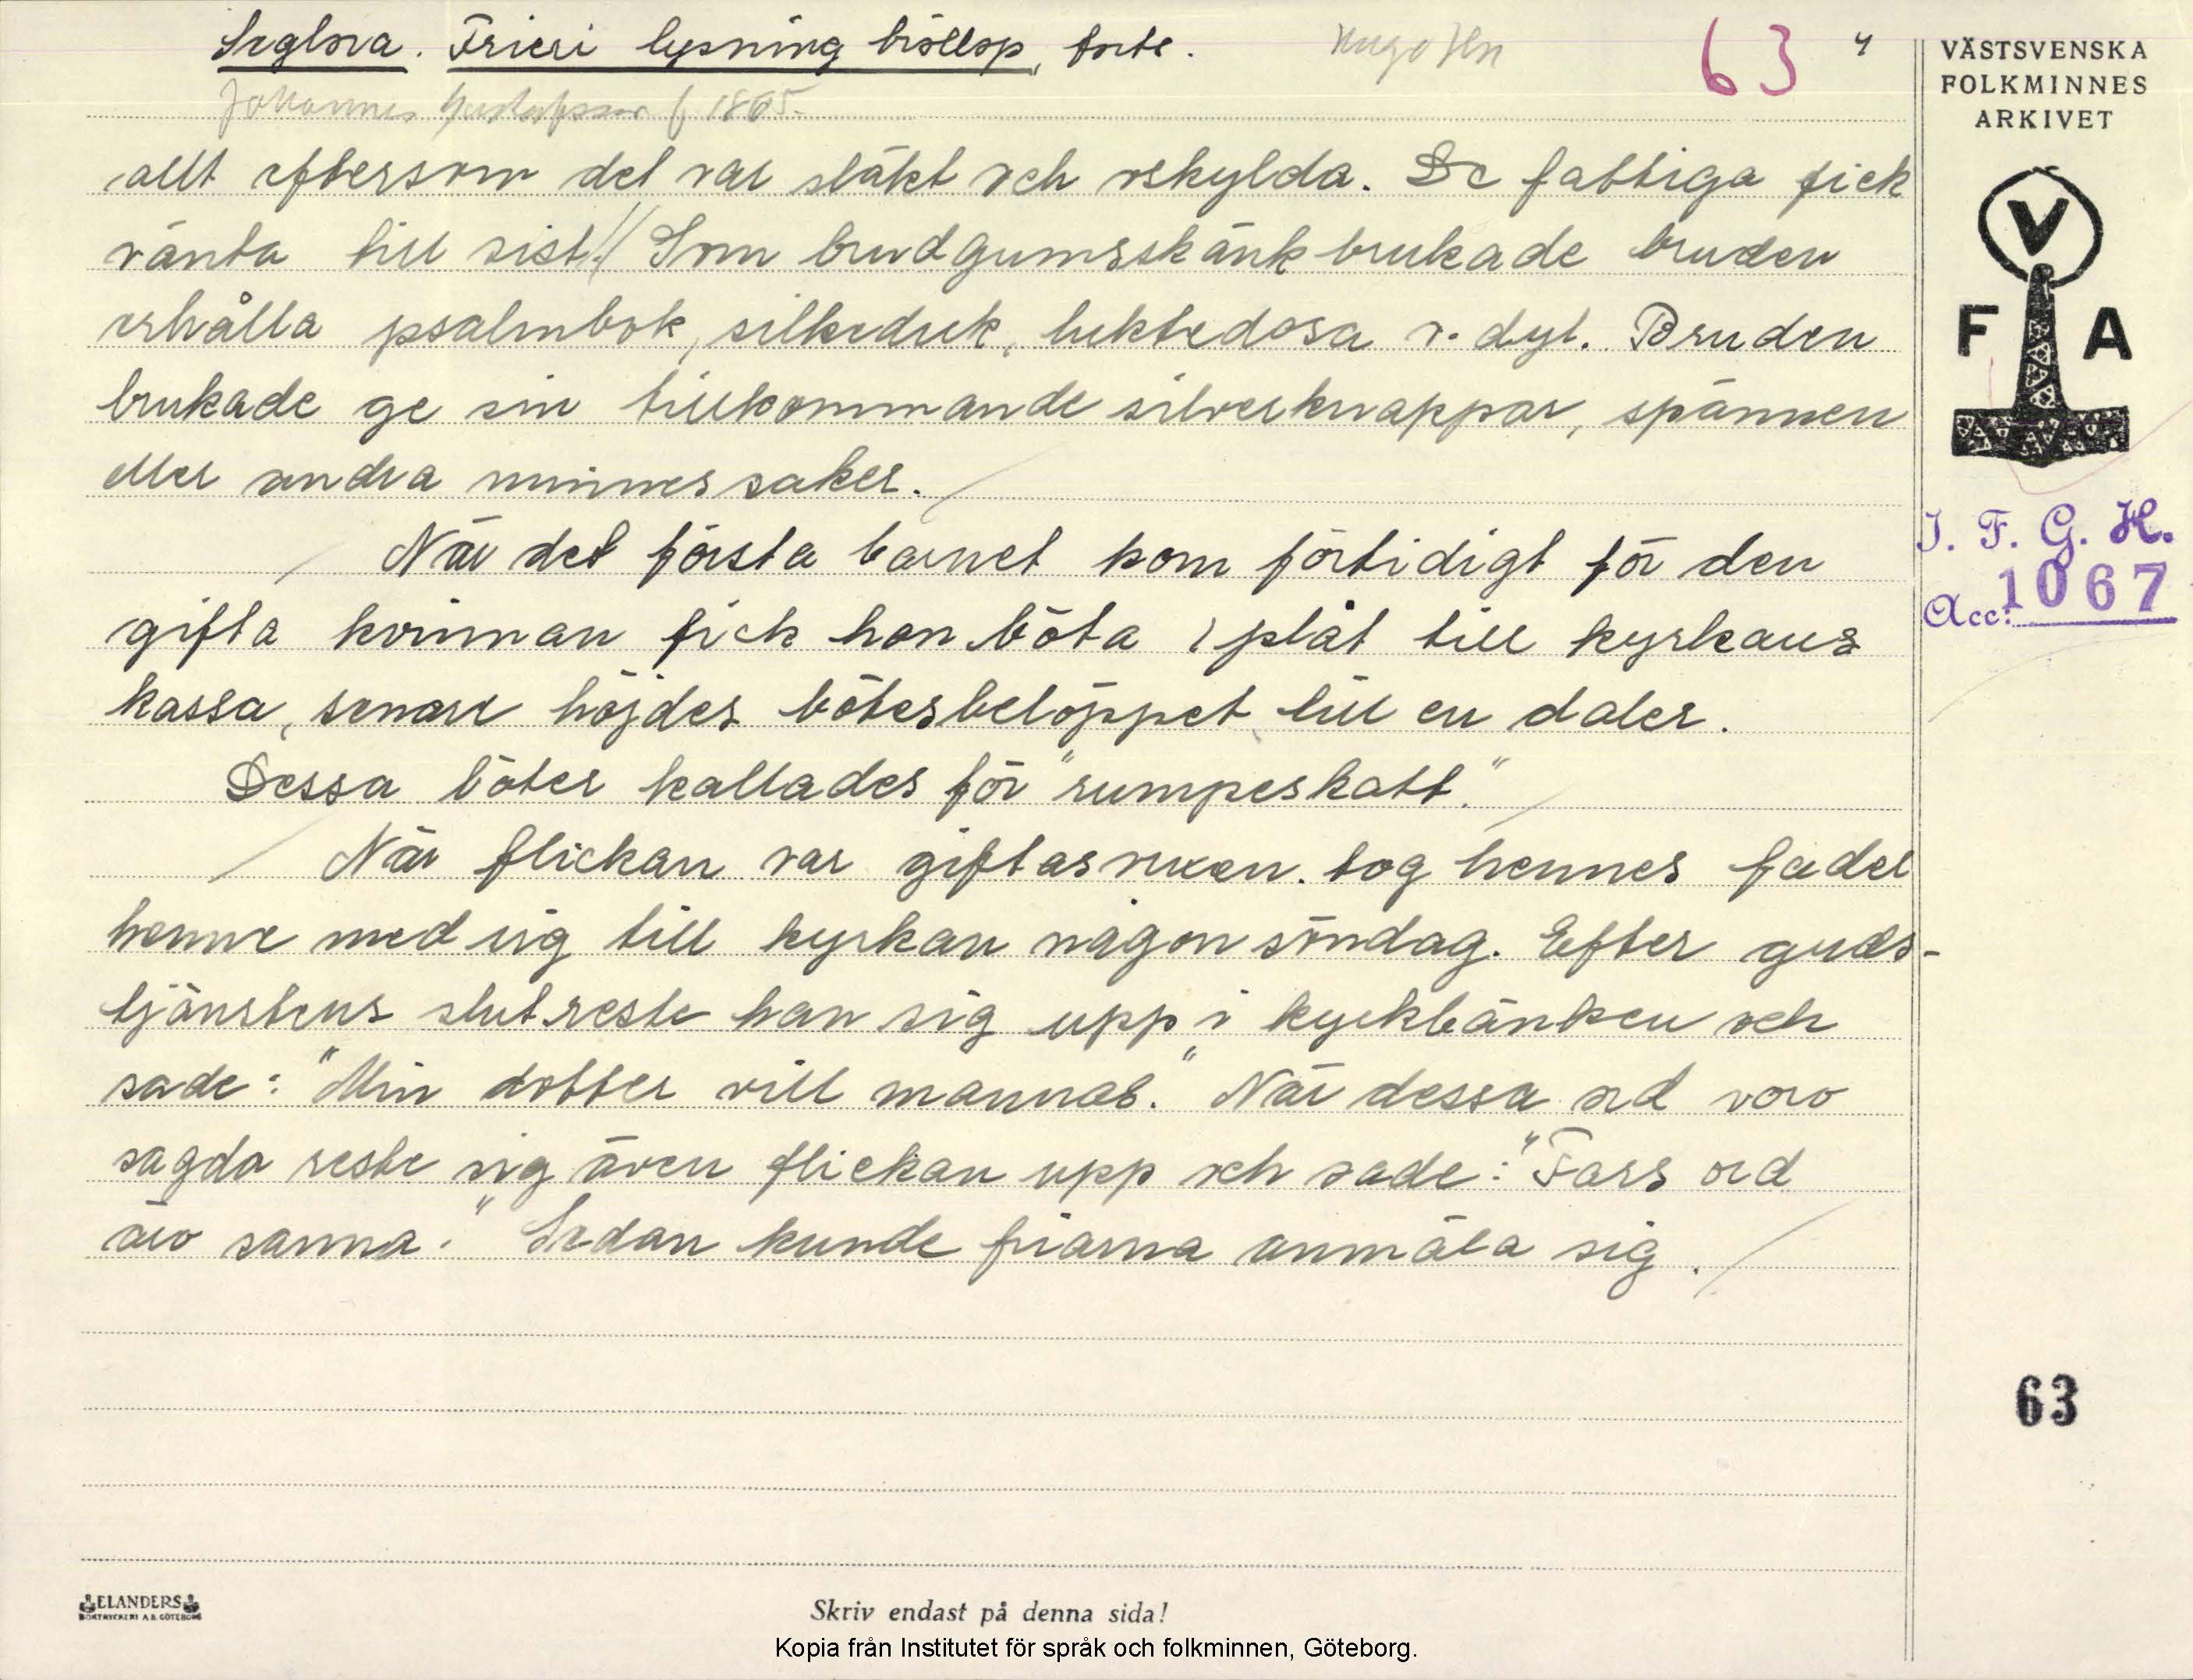 Seglora. Frieri lysning bröllop, forts. 63 4
Johannes Gustafsson f. 1865.
allt eftersom det var släkt och oskylda. De fattiga fick
vänta till sist.// Som brudgumsskänk brukade bruden
erhålla psalmbok, silkeduk, luktedosa o. dyl. Bruden
brukade ge sin tillkommande silverknappar, spännen
eller andra minnessaker.
När det första barnet kom förtidigt för den
gifta kvinnan fick hon böta 1 plåt till kyrkans
kassa, senare höjdes bötesbeloppet till en daler.
Dessa böter kallades för "rumpeskatt."
När flickan var giftasvuxen. tog hennes fader
henne med sig till kyrkan någon söndag. Efter guds-
tjänstens slut reste han sig upp i kyrkbänken och
sade: "Min dotter vill mannas." När dessa ord voro
sagda reste sig även flickan upp och sade: "Fars ord
äro sanna." Sedan kunde friarna anmäla sig.
VÄSTSVENSKA
FOLKMINNES
ARKIVET
V
F A
I. F. G. H.
Acc: 1067
63
ELANDERS
BOKTRYCKERI A.B. GÖTEBORG
Skriv endast på denna sida!
Kopia från Institutet för språk och folkminnen, Göteborg.